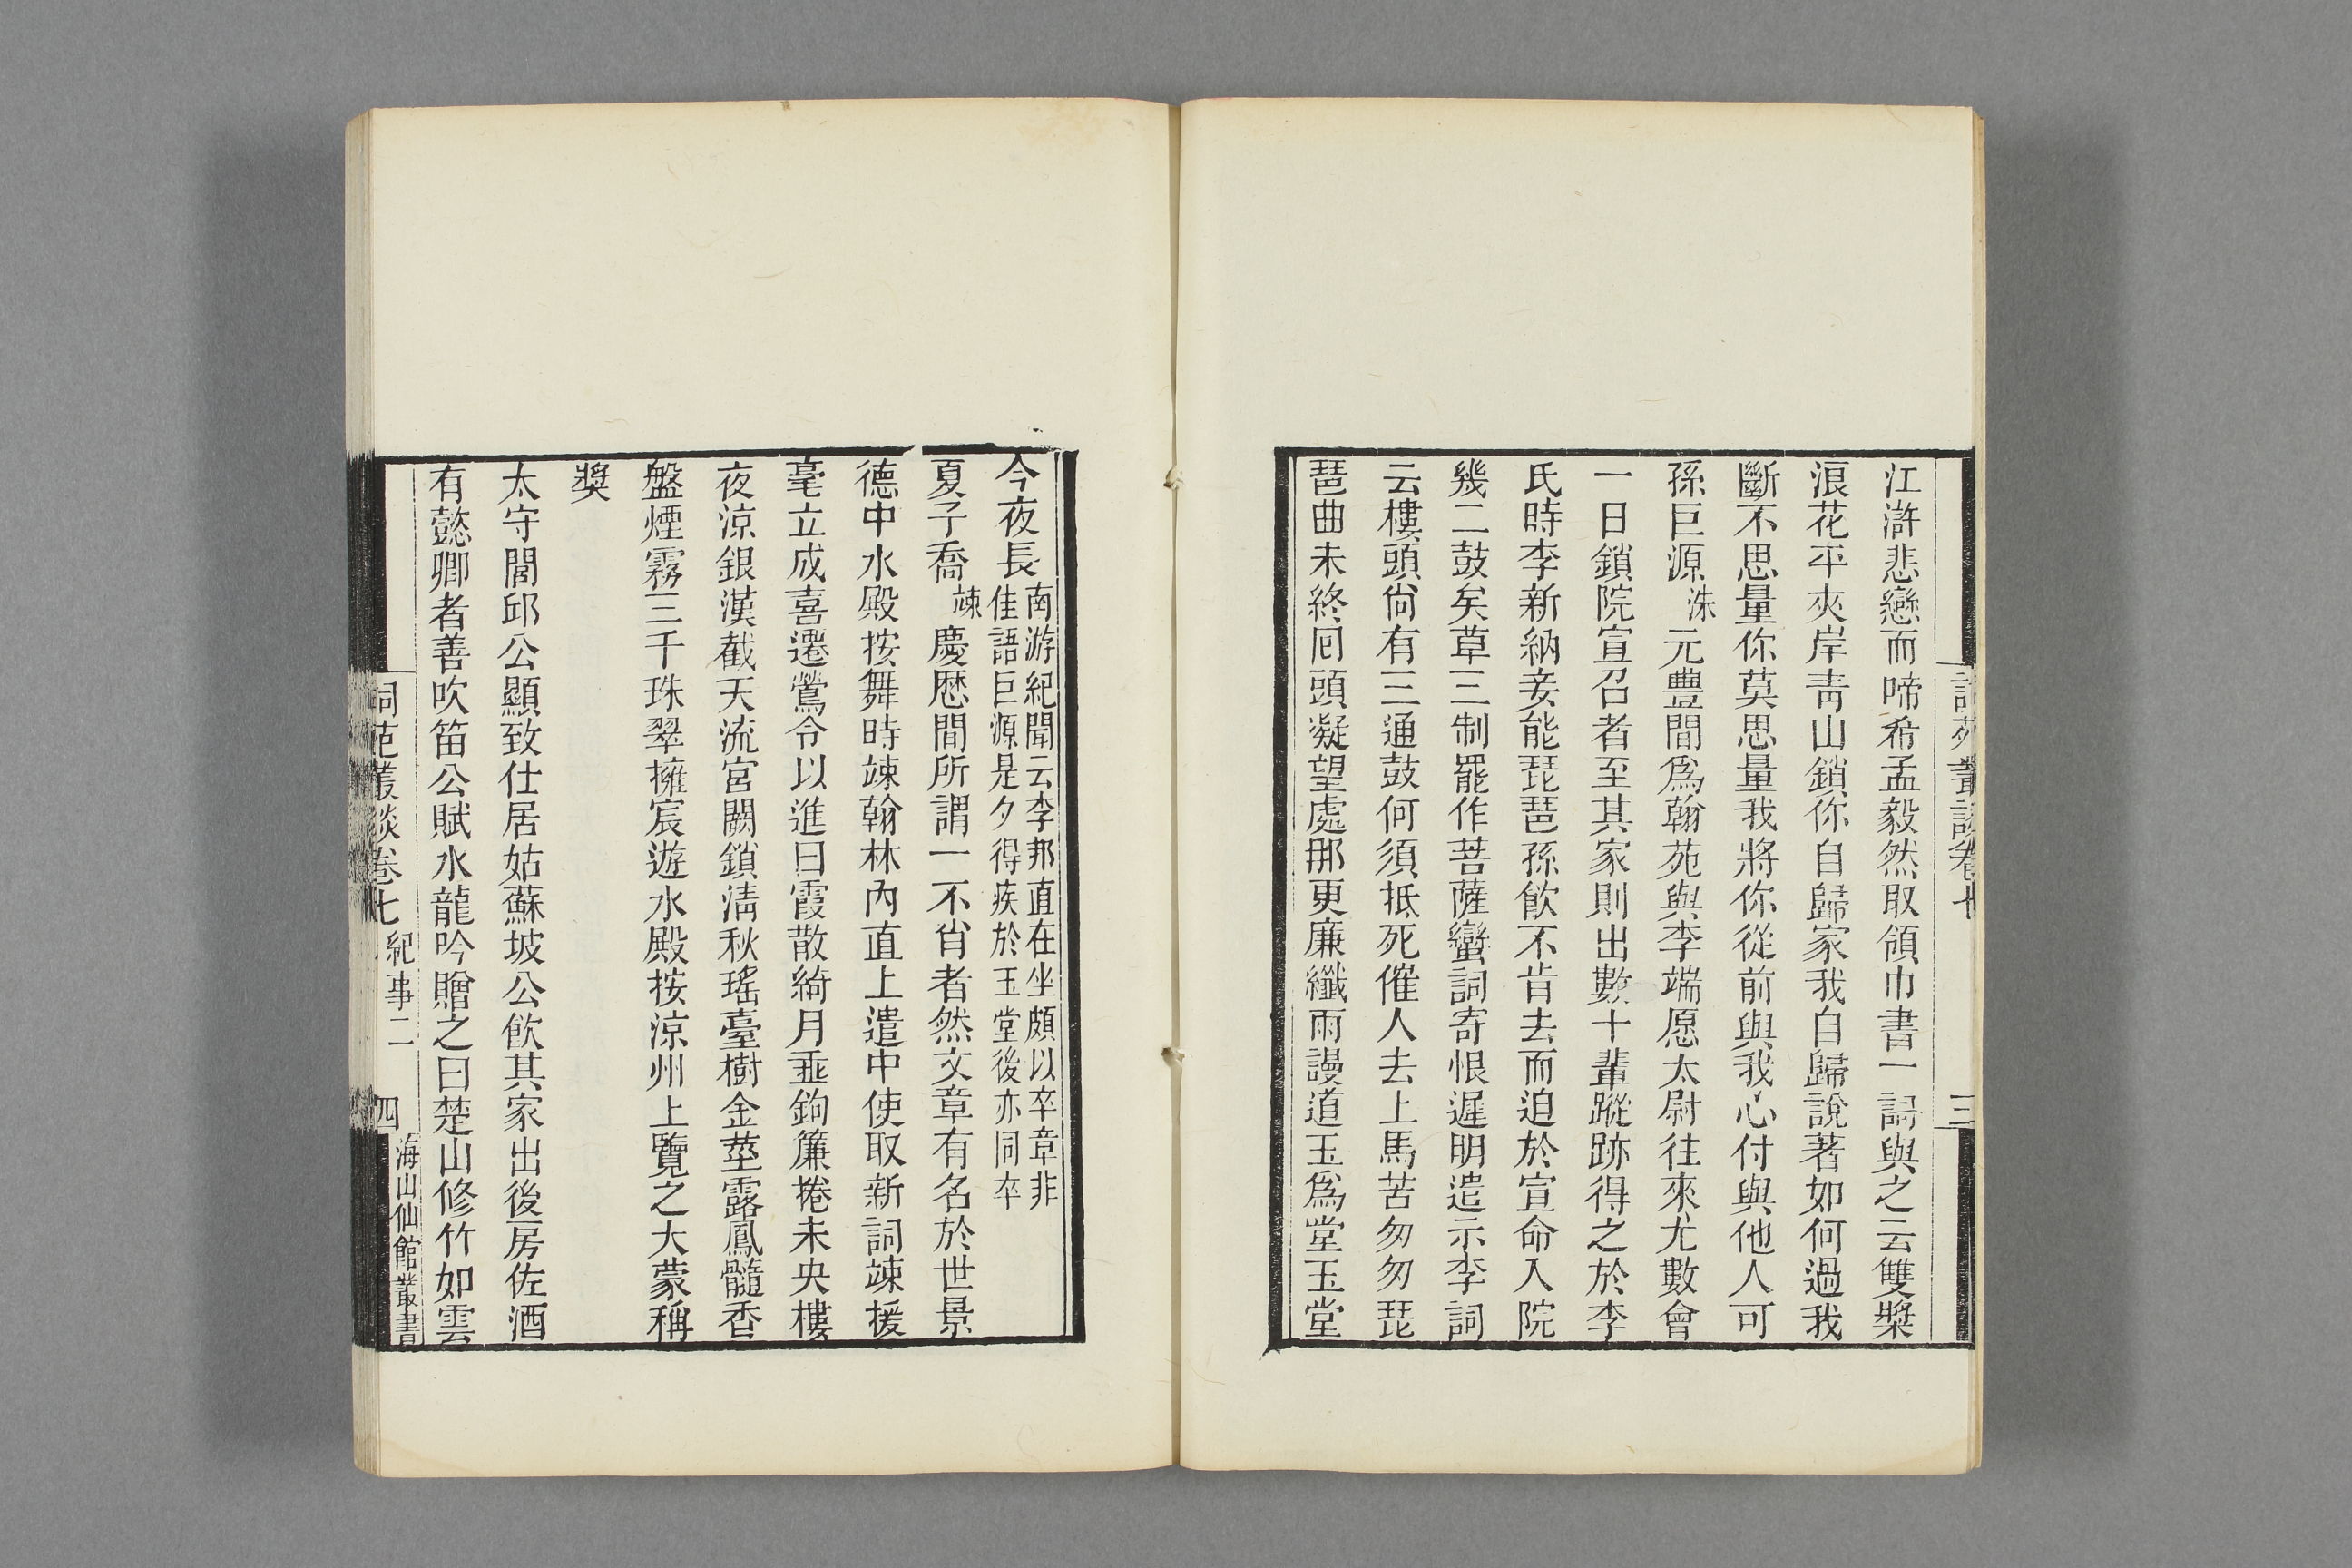 詞苑叢談卷七
三
江滸悲戀而啼希孟毅然取領巾書一詞與之云雙槳
浪花平夾岸靑山鎖你自歸家我自歸說著如何過我
斷不思量你莫思量我將你從前與我心付與他人可
孫巨源洙元豐間爲翰苑與李端愿太尉往來尤數會
一日鎖院宣召者至其家則出數十輩蹤跡得之於李
氏時李新納妾能琵琶孫飮不肯去而迫於宣命入院
幾二鼓矣草三制罷作菩薩蠻詞寄恨遲明遣示李詞
云樓頭尙有三通鼓何須抵死催人去上馬苦匆匆琵
琶曲未終囘頭凝望處那更廉纖雨謾道玉爲堂玉堂
今夜長
南游紀聞云李邦直在坐頗以卒章非
佳語巨源是夕得疾於玉堂後亦同卒
夏子喬竦慶厯間所謂一不肖者然文章有名於世景
德中水殿按舞時竦翰林內直上遣中使取新詞竦援
毫立成喜遷鶯令以進曰霞散綺月垂鉤簾捲未央樓
夜涼銀漢截天流宮闕鎖淸秋瑤臺樹金莖露鳳髓香
盤煙霧三千珠翠擁宸遊水殿按涼州上覽之大蒙稱
奬
太守閭邱公顯致仕居姑蘇坡公飮其家出後房佐酒
有懿卿者善吹笛公賦水龍吟贈之曰楚山修竹如雲
詞苑叢談卷七
紀事二
四
海山仙館叢書